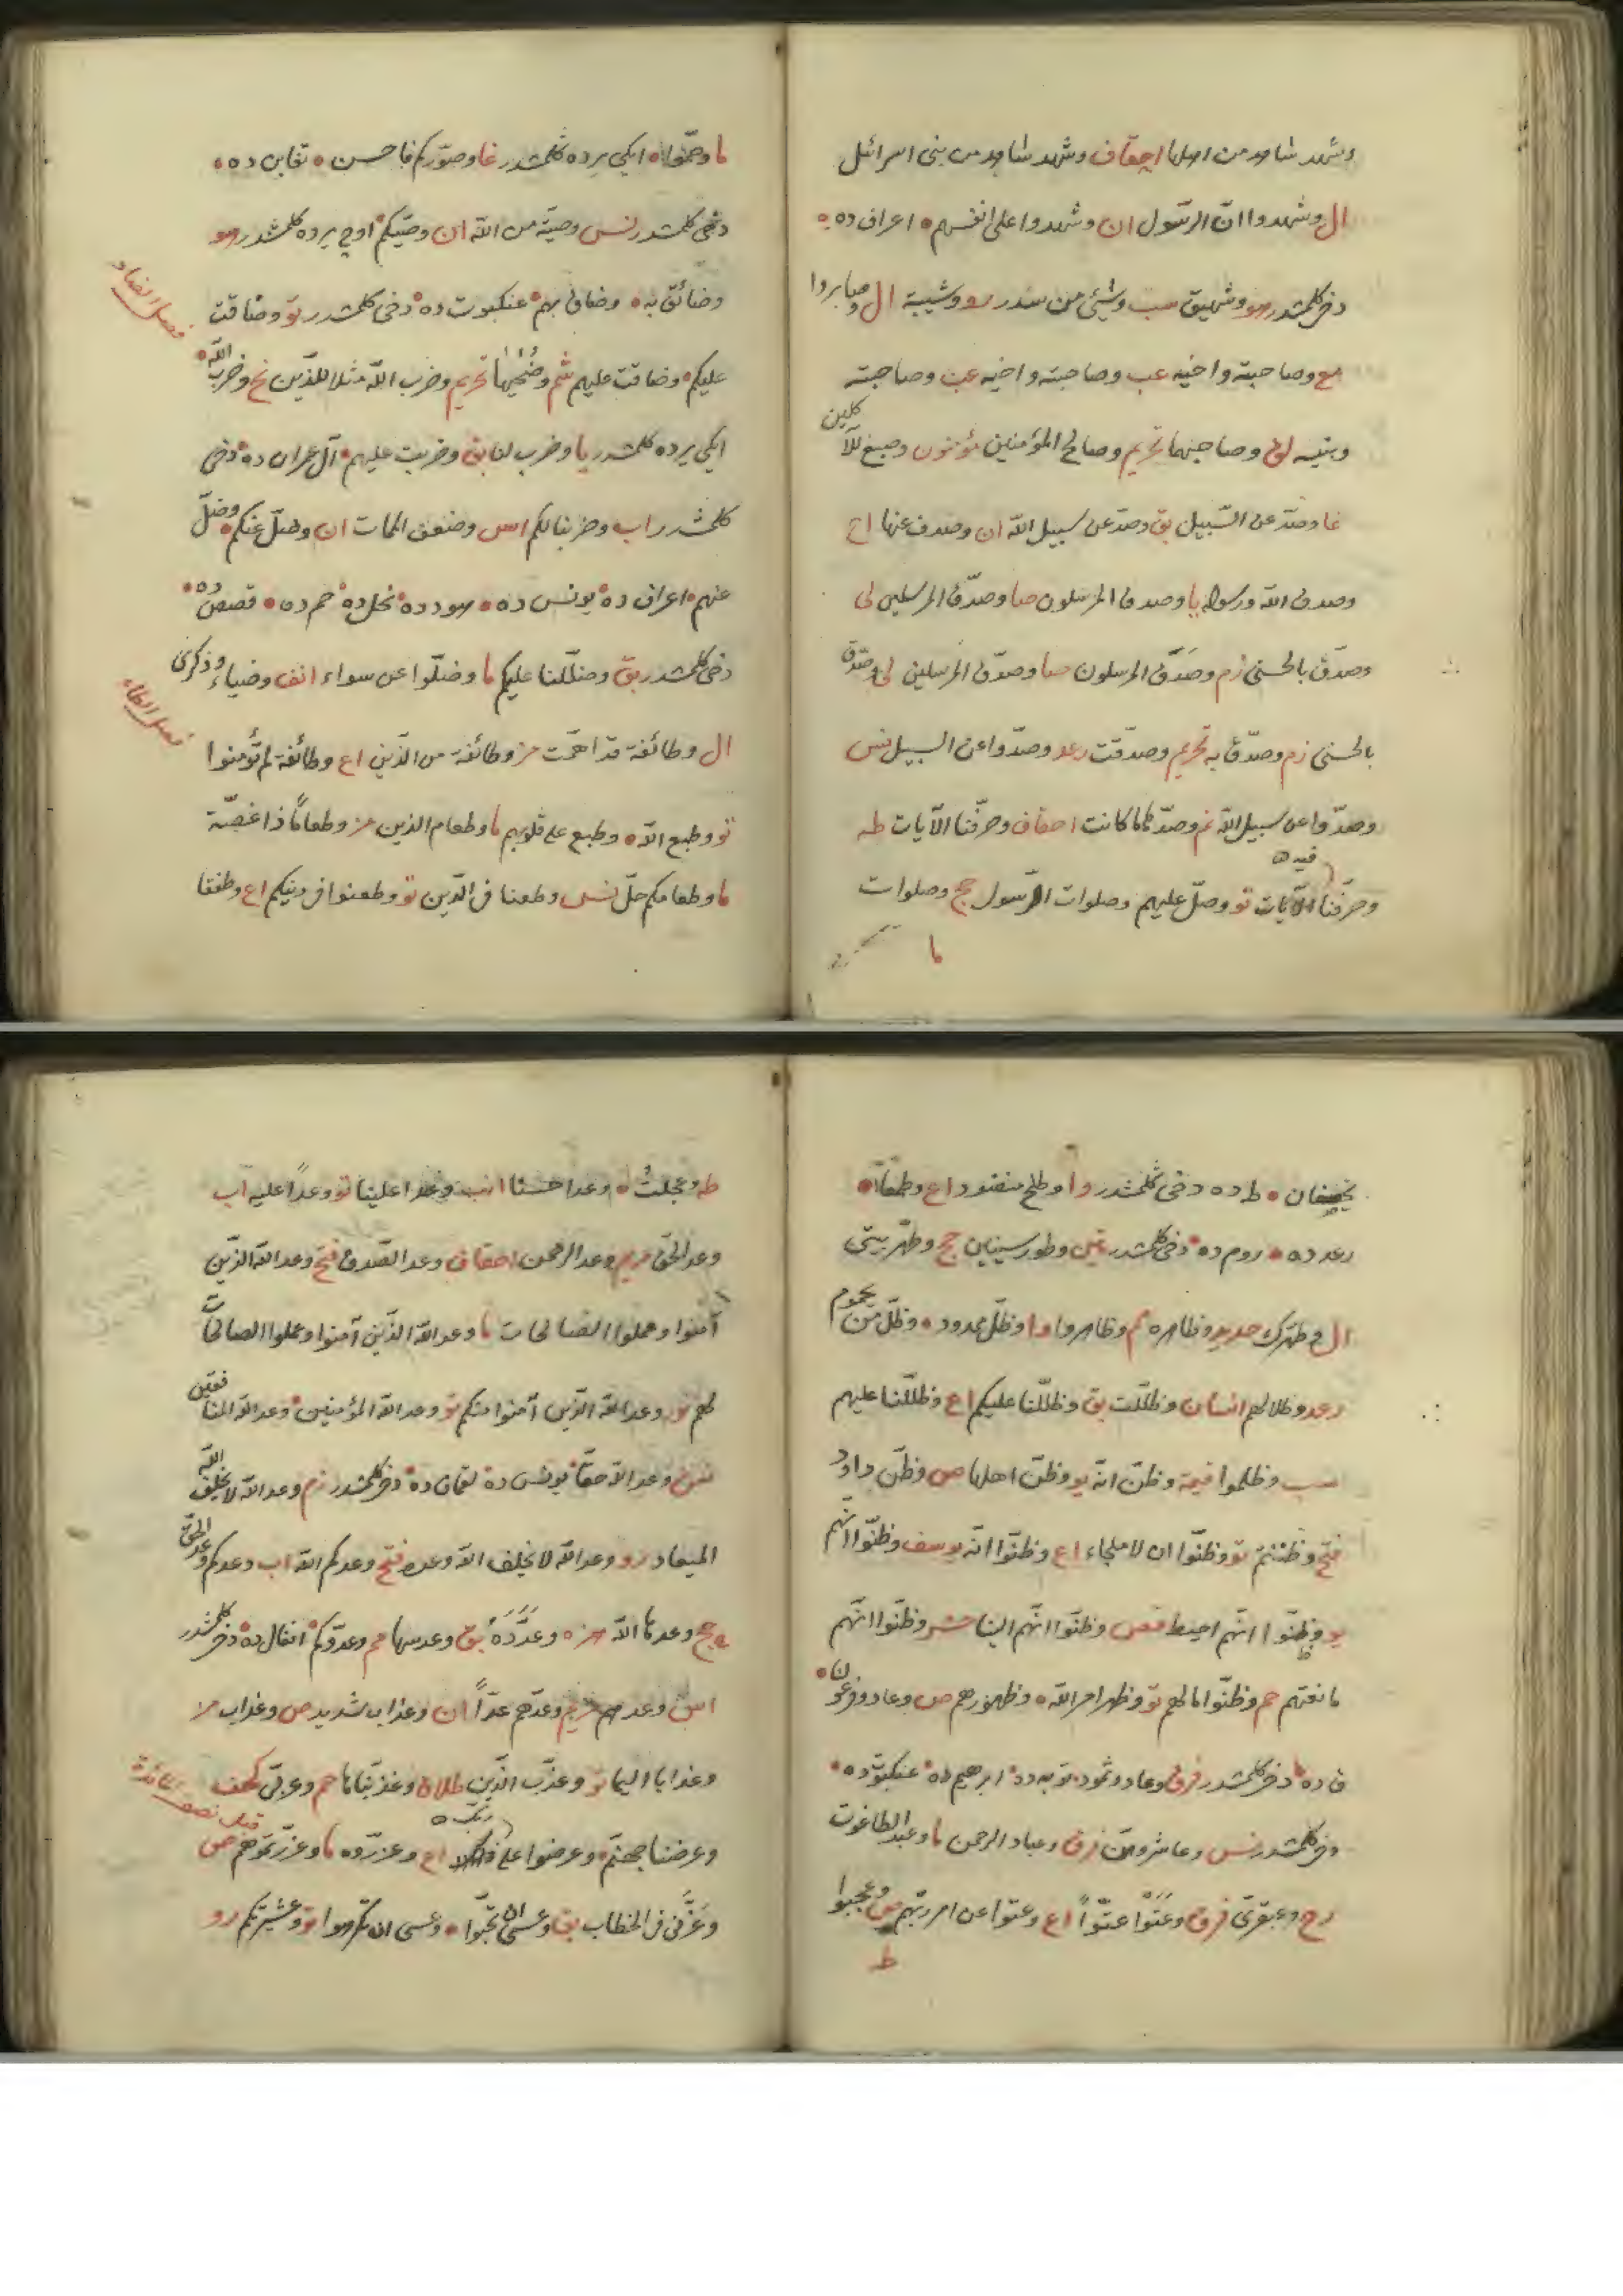 وشهد شاهد من اهلها احقاف وشهد شاهد من بنى اسرائل
ال وشهدوا ان الرسول ان وشهدوا على انفسهم اعراف ده
دخى كلمشدر هو وشهيق سب وشئ من سدر رو وشيبة ال وصابروا
مع وصاحبته واخيه عب وصاحبته واخيه عب وصاحبته
وبنيه لق وصاحبهما تحريم وصالح المؤمنين مؤمنون وصبغ للآكلين
غا وصدّ عن السّبيل بق وصدّ عن سبيل الله ان وصدف عنها اح
وصدق الله ورسوله يا وصدق المرسلون صا وصدّق المرسلين لى
وصدّق بالحسنى زم وصَدَّق المرسلون صا وصدّق المرسلين لى وصدّق
بالحسنى زم وصدّق به تحريم وصدّقت رعد وصدّوا عن السبيل نس
وصدّوا عن سبيل الله نم وصدّها ما كانت احقاف وصرّفنا الآيات طه
وصرّفنا فيه تو وصلّ عليهم وصلوات الرّسول حج وصلوات
ما
ما وصمّوا ايكى يرده كلمشدر غا وصوّركم فاحسن تغابن ده
دخى كلمشدر نس وصيّة من الله ان وصّيكم اوچ يرده كلمشدر هو
وضائق به وضاق بهم عنكبوت ده دخى كلمشدر تو وضاقت
فصل الضاد
عليكم وضاقت عليهم شم وضُحٰيها تحريم وضرب الله مثلا للذين نح وضرب الله
ايكى يرده كلمشدر يا وضرب لنا بق وضربت عليهم آل عمران ده دخى
كلمشدر اب وضربنا لكم اس وضعف الممات ان وضلّ عنكم وضلّ
عنهم اعراف ده يونس ده هود ده نحل ده حم ده قصص ده
دخى كلمشدر بق وظلّلنا عليكم ما وضلّوا عن سواء انف وضياء وذكرى
فصل الطاء
ال وطائفة قد اهمّت مز وطائفة من الّذين اع وطائفة لم تؤمنوا
تو وطبع الله وطبع على قلوبهم ما وطعام الذين مز وطعامًا ذا غصّة
ما وطعامكم حلّ نس وطعنا فى الدّين تو وطعنوا فى دينكم اع وطفقا
يخصفان طه ده دخى كلمشدر وا وطلح منضود اع وطمعا
رعد ده روم ده دخى كلمشدر تين وطور سينين حج وطهّر بيتى
ال وطهّرك حديد وظاهره م وظاهروا وا وظلّ ممدود وظلّ من يحموم
رعد وظلالهم انسان وظلّلت بق وظلّلنا عليكم اع وظلّلنا عليهم
سب وظلموا قيمة وظنّ انّه يو وظنّ اهلها ص وظنّ داود
فتح وظننتم تو وظنّوا ان لا ملجاء اع وظنّوا انّه يوسف وظنّوا انّهم
يو وظنّوا انّهم احيط قصص وظنّوا انّهم الينا حشر وظنّوا انّهم
مانعتهم حم وظنّوا ما لهم تو وظهر امر الله وظهورهم ص وعاد وفرعون
ق ده دخى كلمشدر فرق وعاد وثمود توبه ده ابرهيم ده عنكبوت ده
دخى كلمشدر نس وعاشروهنّ فرق وعباد الرحمن ما وعبد الطاغوت
رح وعبقرىّ فرق وعَتَوْا عتوّاً اع وعتوا عن امر ربّهم ص وعجبوا
ط
طه وعجلتُ وعدا حسنا انب وعدا علينا تو وعدًا عليه اب
وعد الحقّ مريم وعد الرحمن احقاف وعد الصّدق فتح وعد الله الذّين
آمنوا وعملوا الصّالحات ما وعد الله الذّين آمنوا وعملوا الصالحات
لهم نور وعد الله الذّين آمنوا منكم تو وعد الله المؤمنين وعد الله المنافقين
نس وعد الله حقّا يونس ده لقمان ده دخى كلمشدر زم وعد الله لا يخلف الله
الميعاد رو وعد الله لا يخلف الله وعده فتح وعدكم الله اب وعدكم وعد الحقّ
حج وعدها الله مز وعَدَّدَهُ بق وعدسها مم وعدوّكم انفال ده دخى كلمشدر
اس وعدهم مريم وعدّهم عدّاً ان وعذاب شديد ص وعذاب
وعذابا اليما تو وعذّب الّذين طلاق وعذّبناها حم وعربىّ كهف
وعرضنا جهنّم وعرضوا على ربك اع وعزّروه ما وعزّرتموهم ص
وعَزَّنى فى الخطاب بق وعسى ان تحبّوا وعسى ان تكرهوا تو وعشيرتكم رو